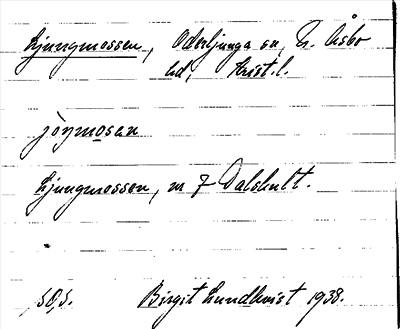 Ljungmossen, Oderljunga sn, N. Åsbo
hd, Krist.l.
jöŋmosen
Ljungmossen, m 7 Dalshult.
SO,S. Birgit Lundkvist 1938.